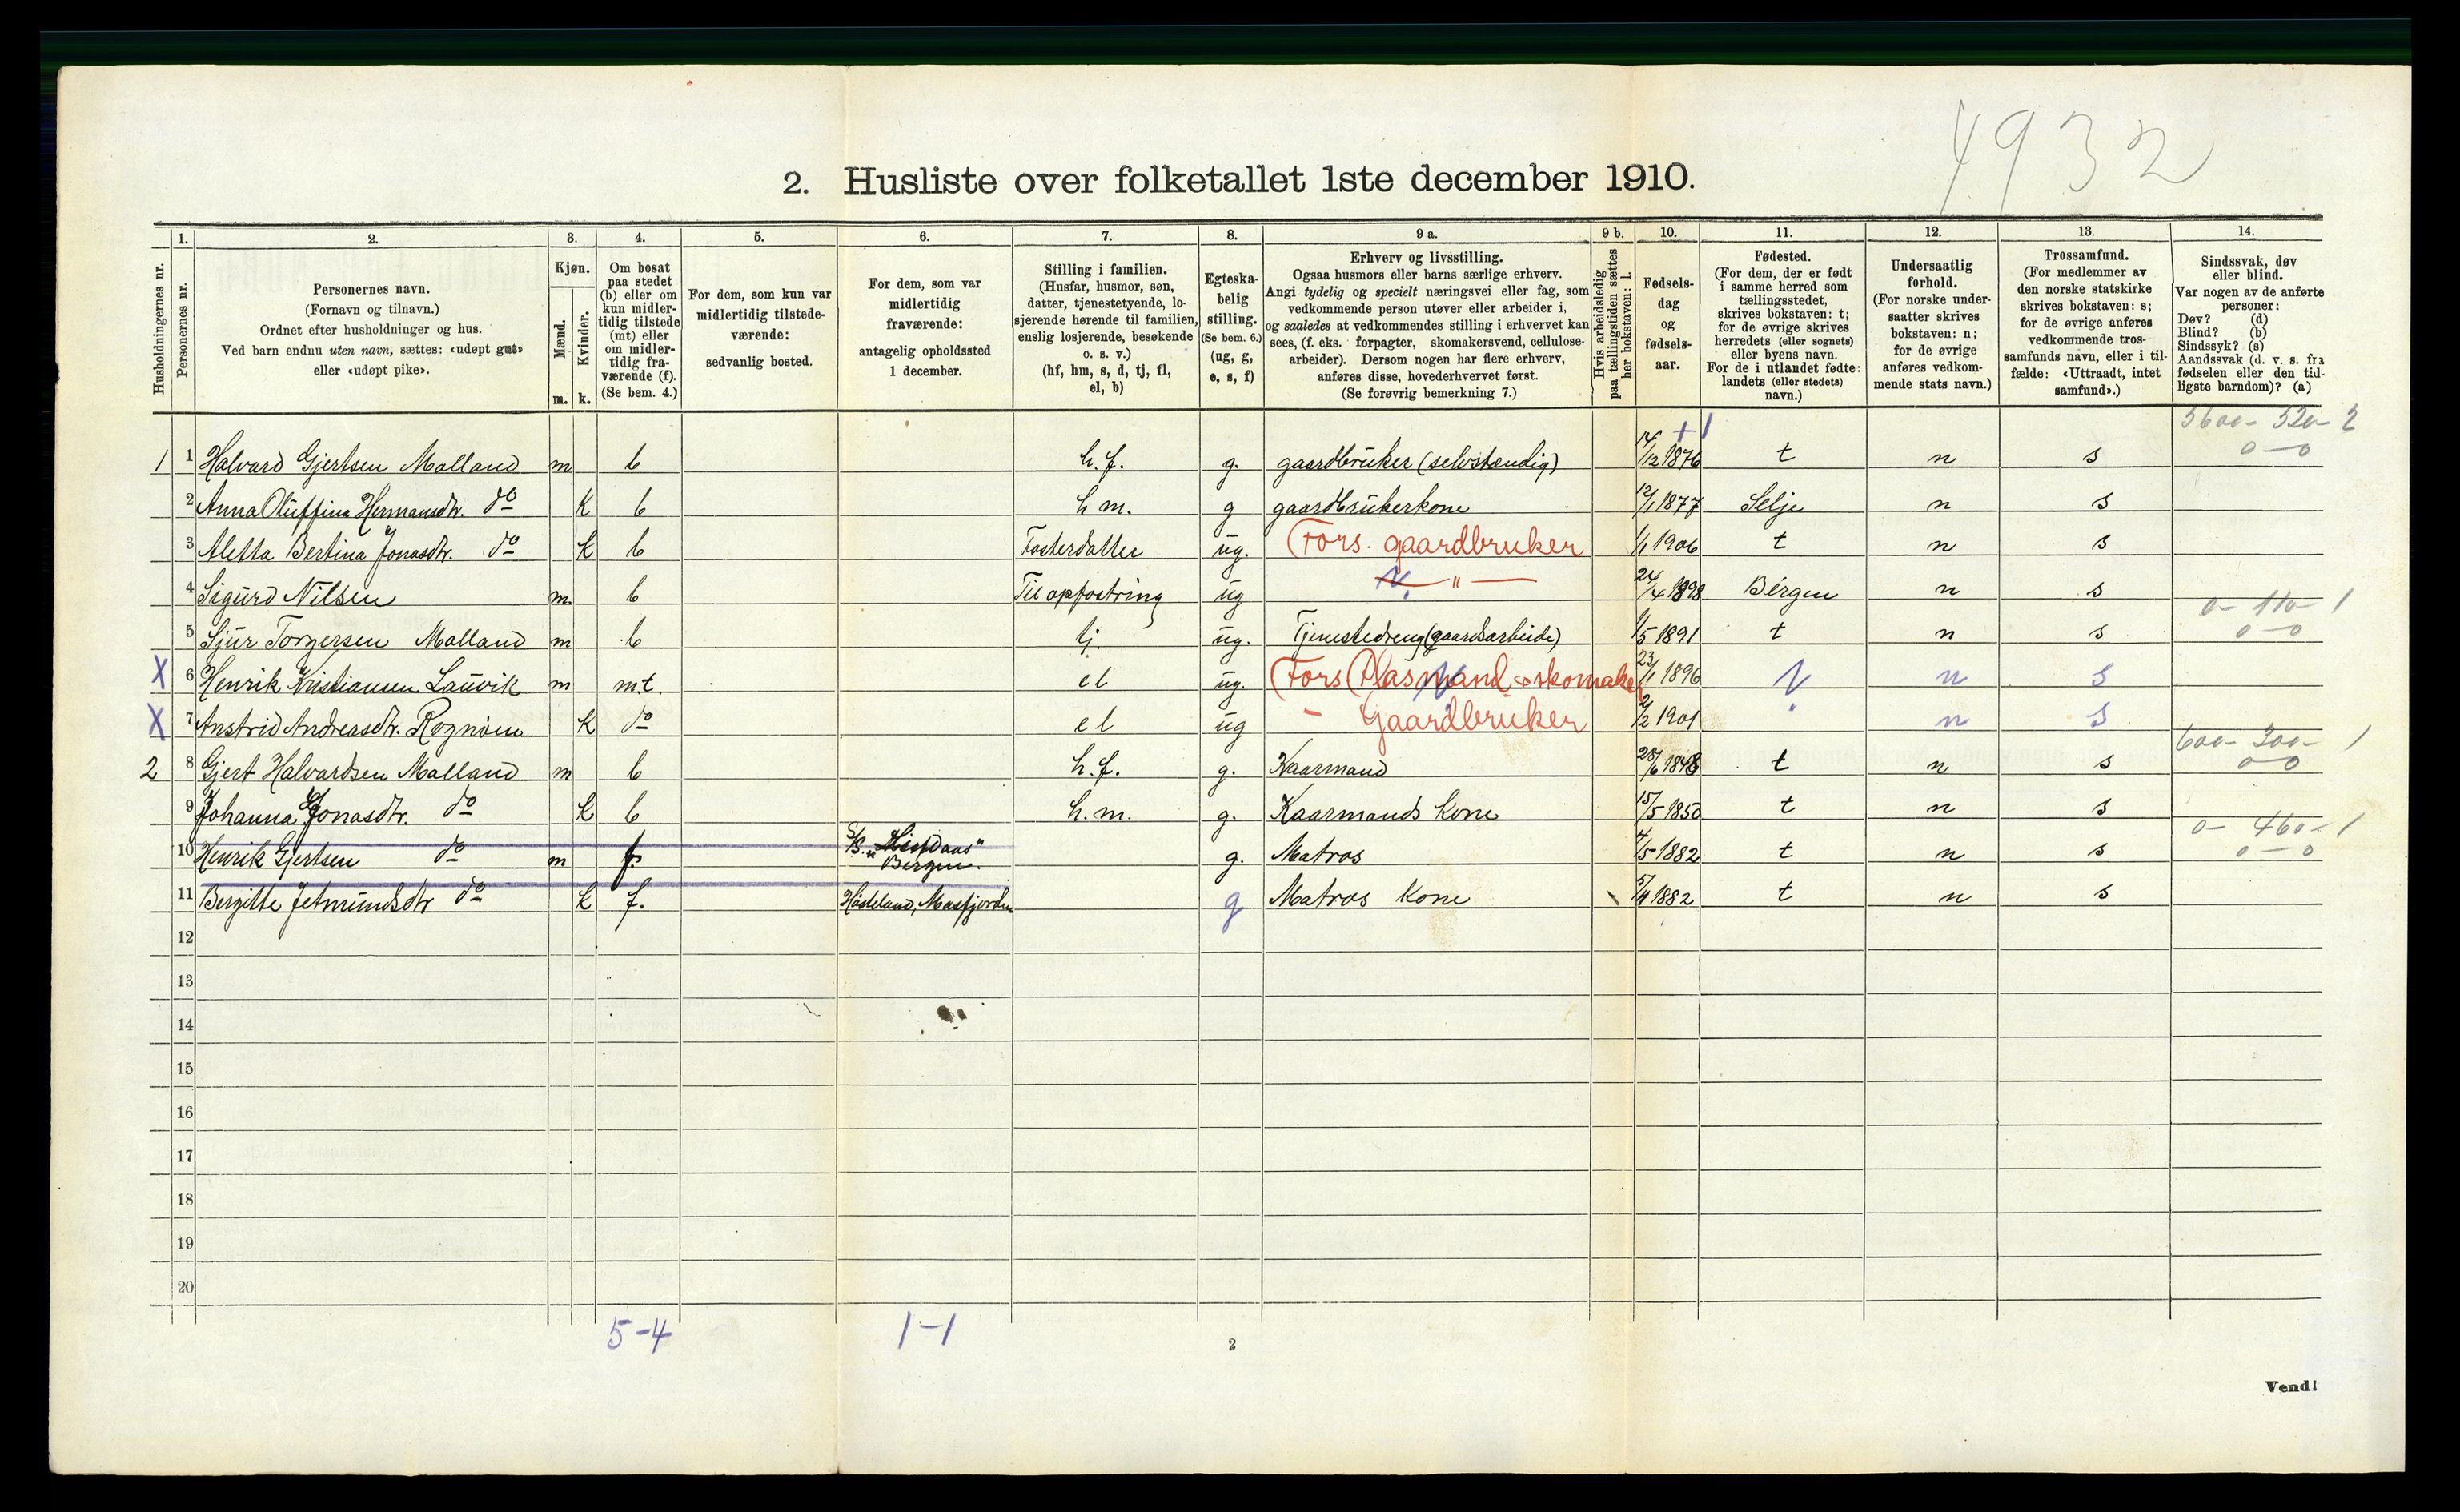 4932
2. Husliste over folketallet 1ste december 1910.
Husholdningernes nr.
1.
Personernes nr.
2.
Personernes navn.
(Fornavn og tilnavn.)
Ordnet efter husholdninger og hus.
Ved barn endnu uten navn, sættes: «udøpt gut»
eller «udøpt pike».
3.
Kjøn.
Mænd.
m.
Kvinder.
k.
4.
Om bosat
paa stedet
(b) eller om
kun midler-
tidig tilstede
(mt) eller
om midler-
tidig fra-
værende (f).
(Se bem. 4.)
5.
For dem, som kun var
midlertidig tilstede-
værende:
sedvanlig bosted.
6.
For dem, som var
midlertidig
fraværende:
antagelig opholdssted
1 december.
7.
Stilling i familien.
(Husfar, husmor, søn,
datter, tjenestetyende, lo-
sjerende hørende til familien,
enslig losjerende, besøkende
o. s. v.)
(hf, hm, s, d, tj, fl,
el, b)
8.
Egteska-
belig
stilling.
(Se bem. 6.)
(ug, g,
e, s, f)
9 a.
Erhverv og livsstilling.
Ogsaa husmors eller barns særlige erhverv.
Angi tydelig og specielt næringsvei eller fag, som
vedkommende person utøver eller arbeider i,
og saaledes at vedkommendes stilling i erhvervet kan
sees, (f. eks. forpagter, skomakersvend, cellulose-
arbeider). Dersom nogen har flere erhverv,
anføres disse, hovederhvervet først.
(Se forøvrig bemerkning 7.)
9 b.
Hvis arbeidsledig
paa tællingstiden sættes
her bokstaven: l.
10.
Fødsels-
dag
og
fødsels-
aar.
11.
Fødested.
(For dem, der er født
i samme herred som
tællingsstedet,
skrives bokstaven: t;
for de øvrige skrives
herredets (eller sognets)
eller byens navn.
For de i utlandet fødte:
landets (eller stedets)
navn.)
12.
Undersaatlig
forhold.
(For norske under-
saatter skrives
bokstaven: n;
for de øvrige
anføres vedkom-
mende stats navn.)
13.
Trossamfund.
(For medlemmer av
den norske statskirke
skrives bokstaven: s;
for de øvrige anføres
vedkommende tros-
samfunds navn, eller i til-
fælde: «Uttraadt, intet
samfund».)
14.
Sindssvak, døv
eller blind.
Var nogen av de anførte
personer:
Døv? (d)
Blind? (b)
Sindssyk? (s)
Aandssvak (d. v. s. fra
fødselen eller den tid-
ligste barndom)? (a)
+1 5600- 520- 2
1 1 Halvard Gjertsen Malland m b h.f. g. gaardbruker (selvstændig) 14/12 1876 t n s 0-0
2 Anna Oluffina Hermansdtr. do K b h m. g gaardbrukerkone 12/1 1877 Selje n s
3 Aletta Bertina Jonasdtr. do K b Fosterdatter ug. (Fors. gaardbruker 1/1 1906 t n s
4 Sigurd Nilsen m. b Til opfostring ug — " — 24/4 1898 Bergen n s
0- 110- 1
5 Sjur Torgersen Malland m b tj. ug. Tjenestedreng (gaardsarbeide) 1/5 1891 t n s 0-0
X 6 Henrik Kristiansen Lauvik m mt. el ug. (Fors (Plasmand & skomaker 23/1 1896 n s
X 7 Anstrid Andreasdtr. Rognøen K do el ug - Gaardbruker 2/2 1901 n s
600- 300- 1
2 8 Gjert Halvardsen Malland m b h.f. g. Kaarmand 28/6 1848 t n s 0-0
9 Johanna Jonasdtr. do K b h.m. g. Kaarmands Kone 15/5 1850 t n s
0- 460- 1
10 Henrik Gjertsen do m f. S/S. Bergen. g. Matros 4/5 1882 t n s 0-0
11 Bergitte Jetmundsdtr do K f. Høsteland, Masfjorden g Matros Kone 5/4 1882 t n s
12
13
14
15
16
17
18
19
20
5-4 1-1
2
Vend!